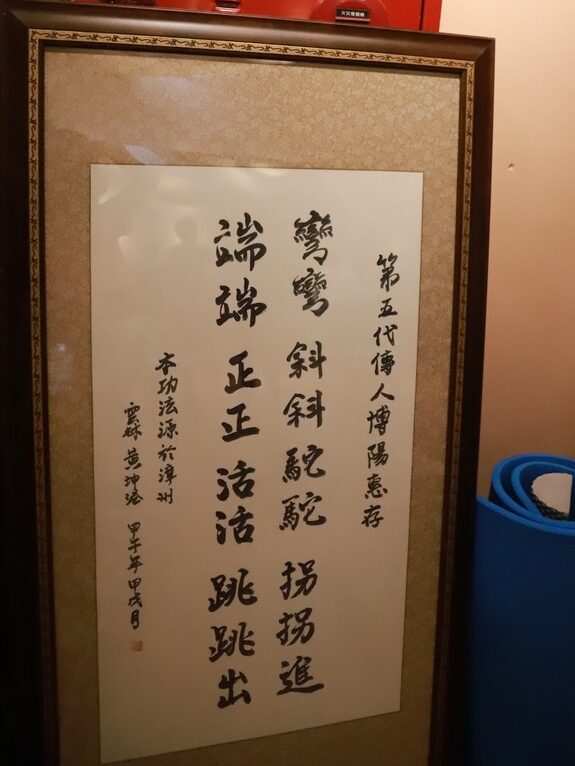 第五代傳人博陽惠存
彎彎斜斜駝駝拐拐進
端端正正活活跳跳出
本功法源於漳州
雲林 黃坤 甲午年甲戌月